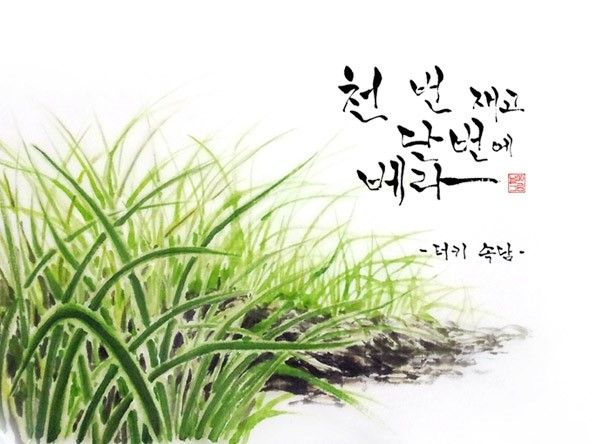 천 번 재고
단번에
베라
- 터키 속담 -